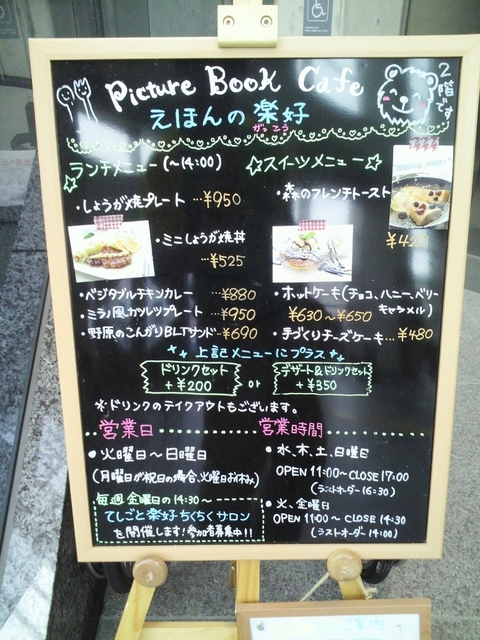 Picture Book Cafe
えほんの楽好
がっこう
2階です
ランチメニュー (〜14:00)
・しょうが焼プレート …¥950
・ミニしょうが焼丼
…¥525
・ベジタブルチキンカレー …¥880
・ミラノ風カツレツプレート …¥950
・野原のこんがりBLTサンド …¥690
☆スイーツメニュー☆
・森のフレンチトースト
・ホットケーキ(チョコ、ハニー、ベリー
キャラメル)
¥630〜¥650
・手づくりチーズケーキ…¥480
上記メニューにプラス
ドリンクセット
+¥200
or
デザート&ドリンクセット
+¥350
※ドリンクのテイクアウトもございます。
営業日
●火曜日〜日曜日
(月曜日が祝日の場合、火曜日お休み)
毎週 金曜日の14:30〜
てしごと楽好ちくちくサロン
を開催します!参加者募集中!!
営業時間
●水、木、土、日曜日
OPEN 11:00〜CLOSE 17:00
(ラストオーダー 16:30)
●火、金曜日
OPEN 11:00〜CLOSE 14:30
(ラストオーダー 14:00)
ご案内